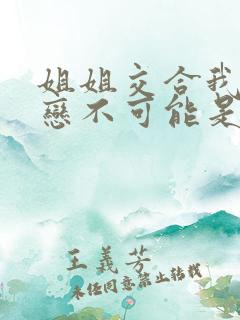 姐姐交合我
戀不可能是
王義芳
未任同意禁止转载